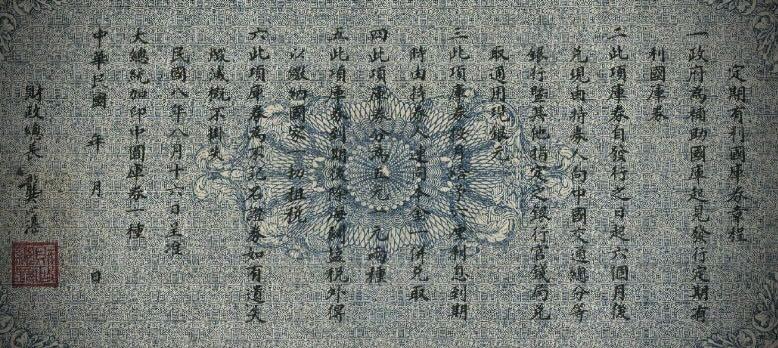 定期有利國庫券章程
一政府為補助國庫起見發行定期有
利國庫券
二此項庫券自發行之日起六個月後
兌現由持券人向中國交通總分等
銀行暨其他指定之銀行官錢局兌
取通用現銀元
三此項庫券按月 利息到期
時由持券人連同本金一併兌取
四此項庫券分為五元一元兩種
五此項庫券到期後除海關鹽稅外得
以繳納國家一切租稅
六此項庫券為不記名證券如有遺失
毀滅概不掛失
民國八年八月十六日呈准
大總統加印中國庫券一種
中華民國 年 月 日
財政總長 龔心湛